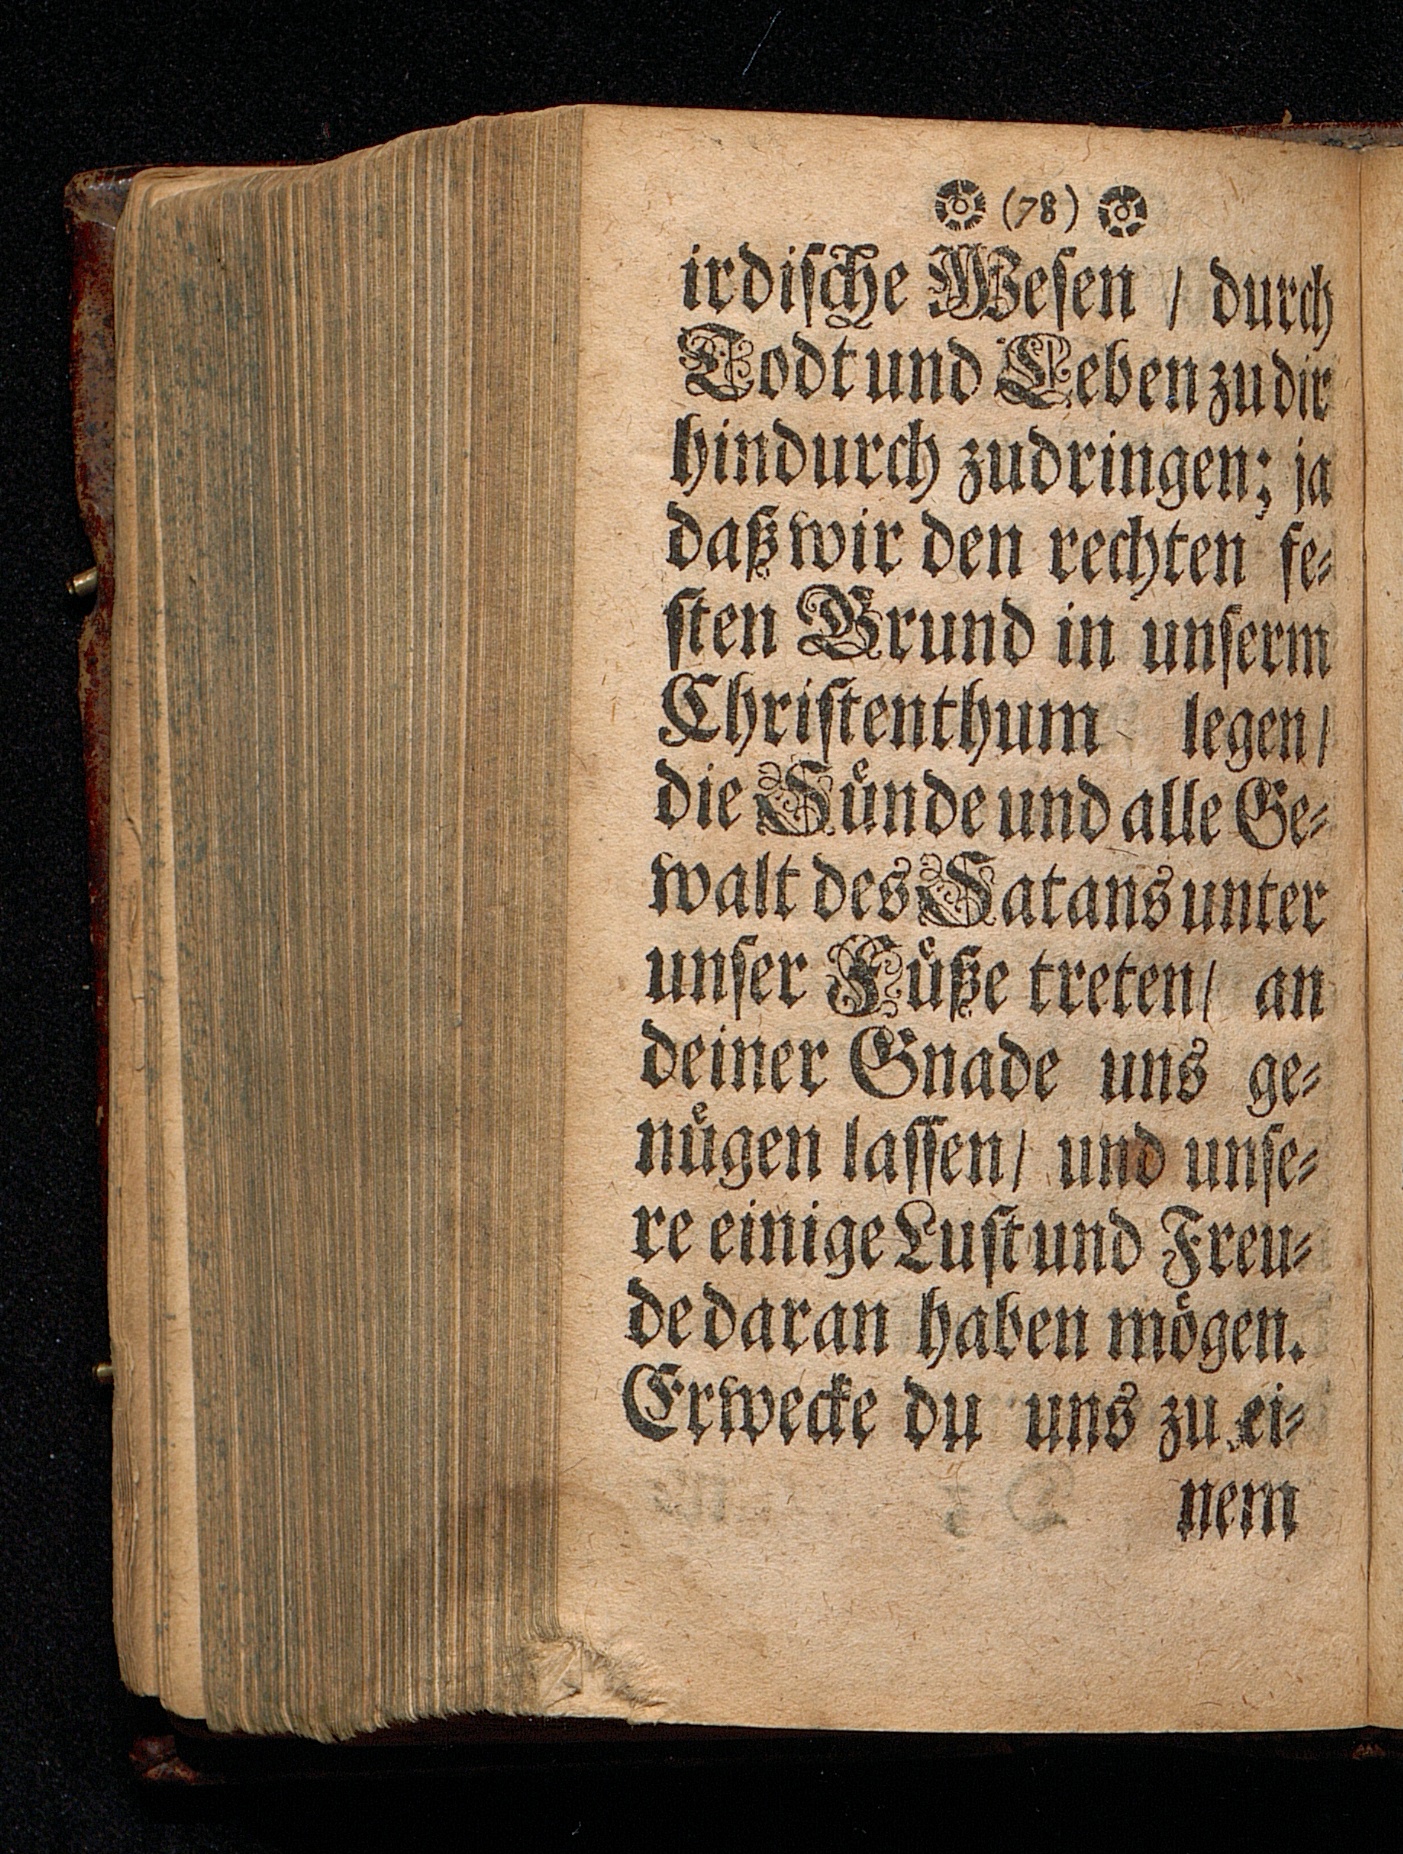 (78)
irdiſche Weſen / durch
Todt und Leben zu dir
hindurch zudringen; ja
daß wir den rechten fe⸗
ſten Grund in unſerm
Chriſtenthum legen/
die Suͤnde und alle Ge⸗
walt des Satans unter
unſer Fuͤße treten/ an
deiner Gnade uns ge⸗
nuͤgen laſſen/ und unſe⸗
re einige Luſt und Freu⸗
de daran haben moͤgen.
Erwecke du uns zu ei⸗
nem